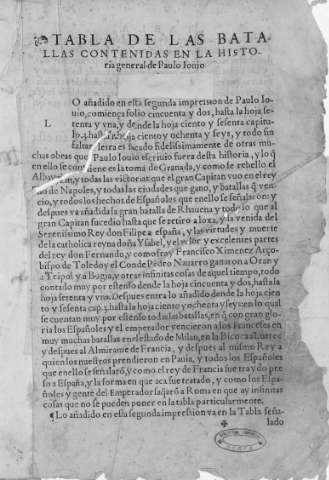 TABLA DE LAS BATA-
LLAS CONTENIDAS EN LA HISTO-
ria general de Paulo Iouio.
LO añadido en esta segunda impression de Paulo Io-
uio, comiença folio cincuenta y dos, hasta la hoja se-
tenta y vna, y desde la hoja ciento y sesenta capitu-
lo.4.hasta la hoja ciento y ochenta y seys, y todo sin
faltar letra es sacado fidelissimamente de otras mu
chas obras que Paulo Iouio escriuio fuera desta historia, y lo q̃
en ello se contiene es la toma de Granada, y como se rebello el
Albayzin, y todas las victorias que el gran Capitan vuo en el rey
no de Napoles, y todas las ciudades que gano, y batallas q̃ ven-
cio, y todos los hechos de Españoles que en ello se señalaron: y
despues va añadida la gran batalla de Rhauena y todo lo que al
gran Capitan sucedio hasta que se retiro a Loxa, y la venida del
Serenissimo Rey don Felipe a españa, y las virtudes y muerte
de la catholica reyna doña Ysabel, y el valor y excelentes partes
del rey don Fernando, y como fray Francisco Ximenez Arço-
bispo de Toledo y el Conde Pedro Nauarro ganaron a Oran y
a Tripol y a Bugia, y otras infinitas cosas de aquel tiempo, todo
contado muy por estenso desde la hoja cincuenta y dos, hasta la
hoja setenta y vna. Despues entra lo añadido desde la hoja cien
to y sesenta cap.4. hasta la hoja ciento y ochenta y seys, en lo qual
se cuentan muy por estenso todas las batallas, en q̃ con gran glo-
ria los Españoles y el emperador vencieron a los Franceses en
muy muchas batallas en el estado de Milan, en la Bicoca al turco
y despues al Almirante de Francia, y despues al mismo Rey a
quien los nuestros prendieron en Pauia, y todos los Españoles
que en ello se señalarõ, y como el rey de Francia fue traydo pre
so a España, y la forma en que aca fue tratado, y como los Espa-
ñoles y gente del Emperador saquearõ a Roma en que ay infinitas
cosas que no se pueden poner en la tabla particularmente.
¶ Lo añadido en esta segunda impression va en la Tabla seña-
lado